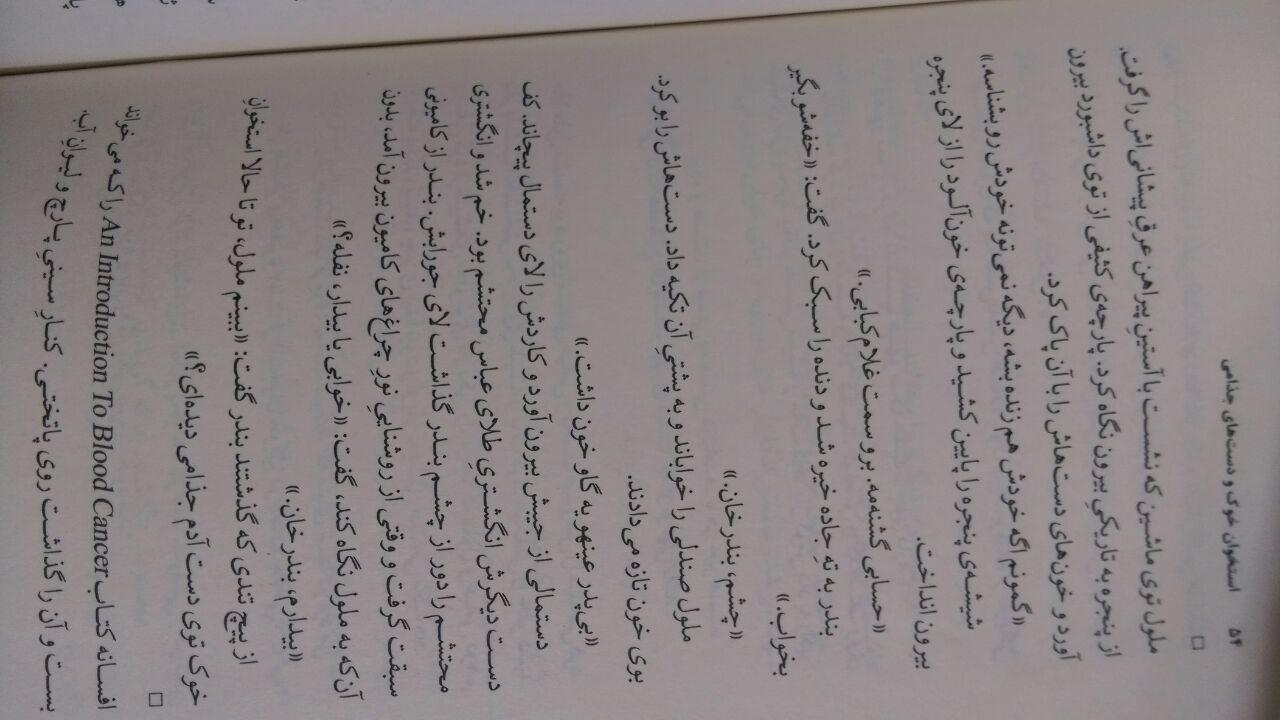 ۵۴ استخوان خوک و دست‌های جذامی
□
ملول توی ماشین که نشست با آستینِ پیراهن عرقِ پیشانی‌اش را گرفت.
از پنجره به تاریکیِ بیرون نگاه کرد. پارچه‌ی کثیفی از توی داشبورد بیرون
آورد و خون‌های دست‌هاش را با آن پاک کرد.
«گمونم اگه خودش هم زنده بشه، دیگه نمی‌تونه خودش رو بشناسه.»
شیشه‌ی پنجره را پایین کشید و پارچه‌ی خون‌آلود را از لای پنجره
بیرون انداخت.
«حسابی گشنمه. برو سمت غلام کبابی.»
بندر به تهِ جاده خیره شد و دنده را سبک کرد. گفت: «خفه‌شو بگیر
بخواب.»
«چشم، بندرخان.»
ملول صندلی را خواباند و به پشتیِ آن تکیه داد. دست‌هاش را بو کرد.
بوی خون تازه می‌دادند.
«بی‌پدر عینهو یه گاو خون داشت.»
دستمالی از جیبش بیرون آورد و کاردش را لای دستمال پیچاند. کف
دست دیگرش انگشتریِ طلای عباس محتشم بود. خم شد و انگشتری
محتشم را دور از چشم بندر گذاشت لای جورابش. بندر از کامیونی
سبقت گرفت و وقتی از روشناییِ نورِ چراغ‌های کامیون بیرون آمد، بدون
آن‌که به ملول نگاه کند، گفت: «خوابی یا بیدار، نفله؟»
«بیدارم، بندرخان.»
از پیچ تندی که گذشتند بندر گفت: «ببینم ملول، تو تا حالا استخوانِ
خوک توی دست آدم جذامی دیده‌ای؟»
□
افسانه کتاب An Introduction To Blood Cancer را که می‌خواند
بست و آن را گذاشت روی پاتختی. کنارِ سینیِ پارچ و لیوانِ آب.